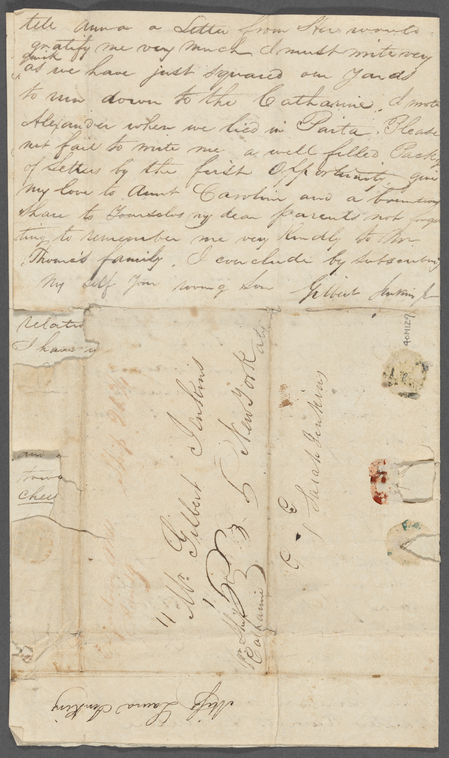 tell Anna a Letter from Her would
gratify me very much I must write very
quick
as we have just squared our Yards
to run down to the Catharine. I wrote
Alexander when we lied in Paita. Please
not fail to write me a well filled Pack
of Letters by the first Opportunity give
My love to Aunt Caroline and a bounteous
Share to Yourselves my dear parents not forget
ting to remember me very kindly to
Thomas family. I conclude by subscribing
My self Your loving son Gilbert Jenkins Jr
relati
I have
Chee
Mr. Gilbert Jenkins
New York
Pr Ship
Catharine
Sarah Jenkins
Miss Laura Jenkins